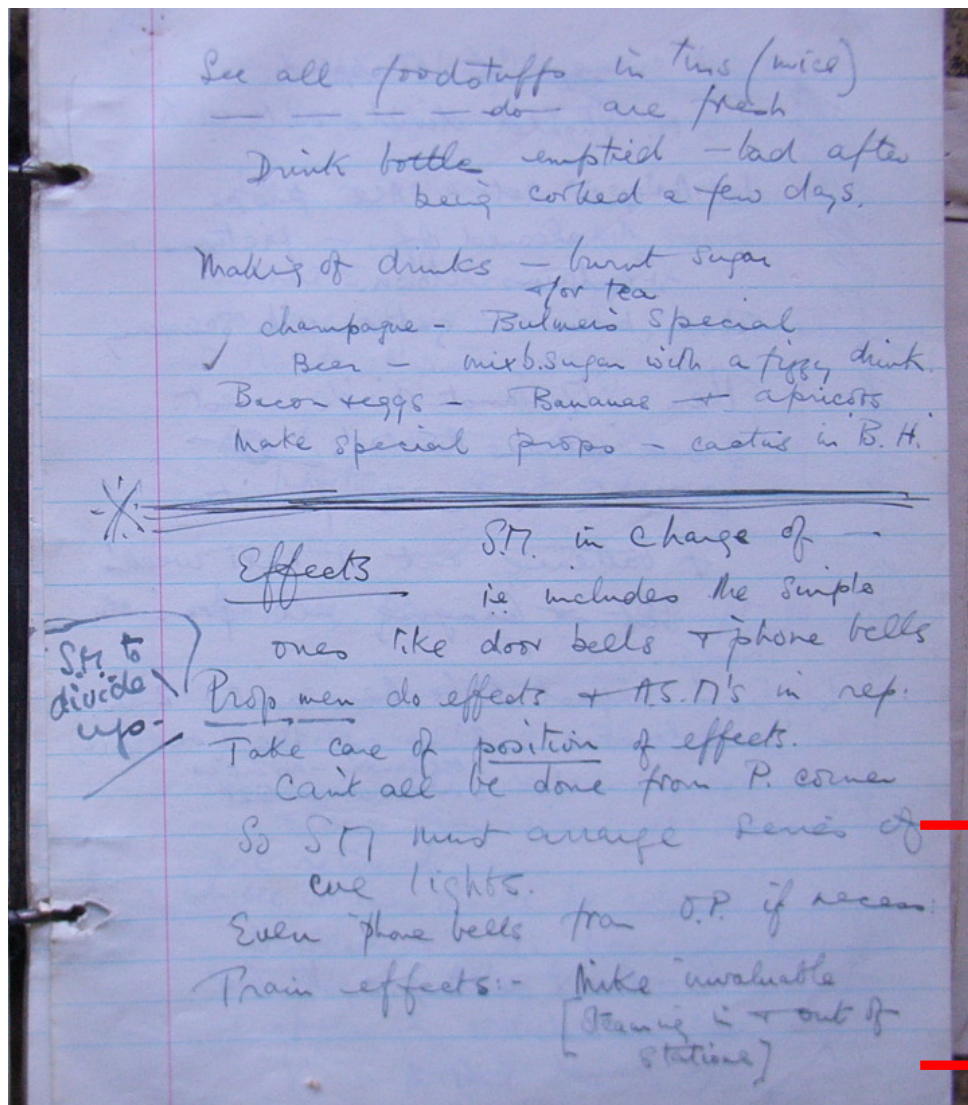 See all foodstuffs in tins (mice)
— — — — do — are fresh
Drink bottle emptied - bad after
being corked a few days.
Making of drinks - burnt sugar
for tea
champagne - Bulmers special
✓ Beer - mix b. sugar with a fizzy drink.
Bacon + eggs - Bananas + apricots
Make special props - cactus in 'B. H.'
Effects S.M. in charge of -
i.e includes the simple
ones like door bells + 'phone bells
S.M. to
divide
up-
Prop men do effects + A.S.M's in rep.
Take care of position of effects.
Can't all be done from P. corner
So SM must arrange series of
cue lights.
Even 'phone bells from O.P. if necess:
Train effects:- Mike invaluable
[Steaming in + out of
stations]